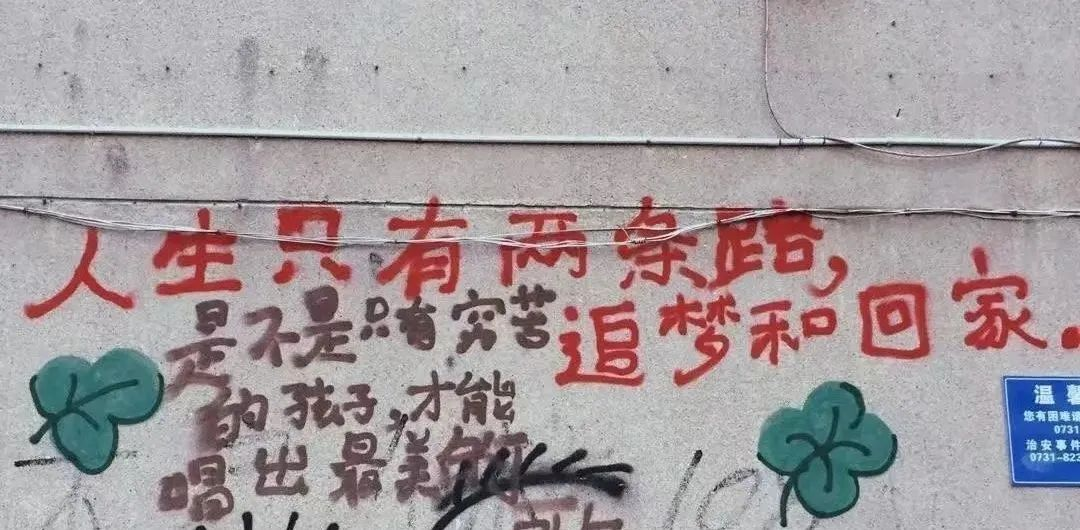 人生只有两条路,
追梦和回家.
是不是只有穷苦
的孩子,才能
唱出最美
温馨
您有困难请
0731
治安事件
0731-823